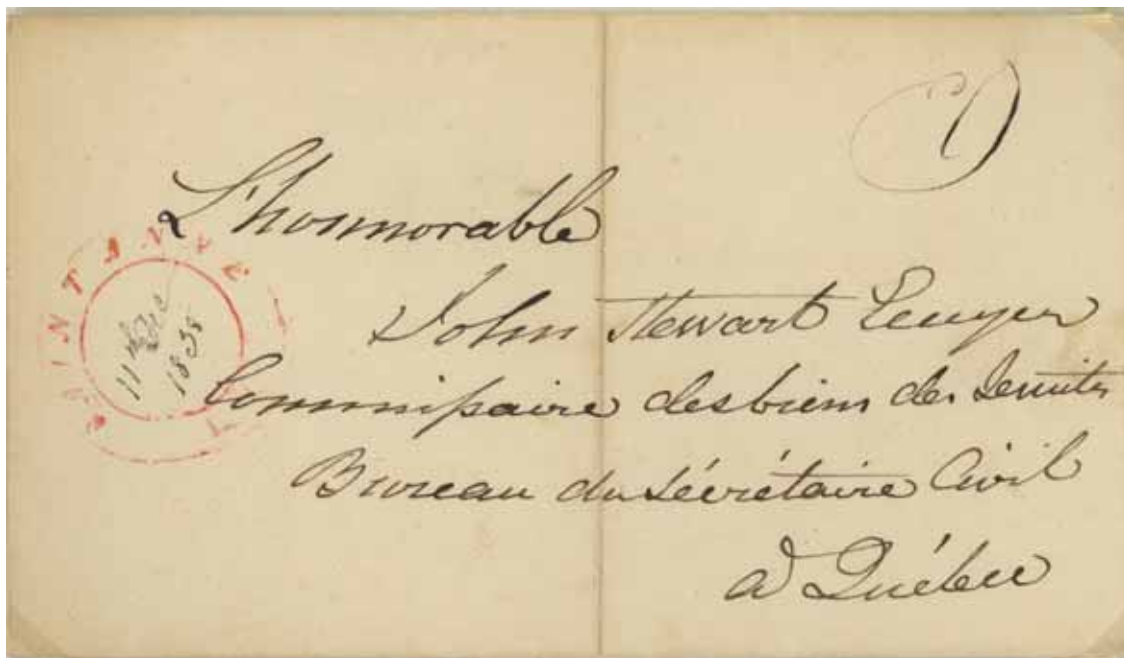 L'honnorable
John Stewart Ecuyer
Commissaire des biens des Jesuites
Bureau du Sécrétaire Civil
à Québec
11th Dec
1838